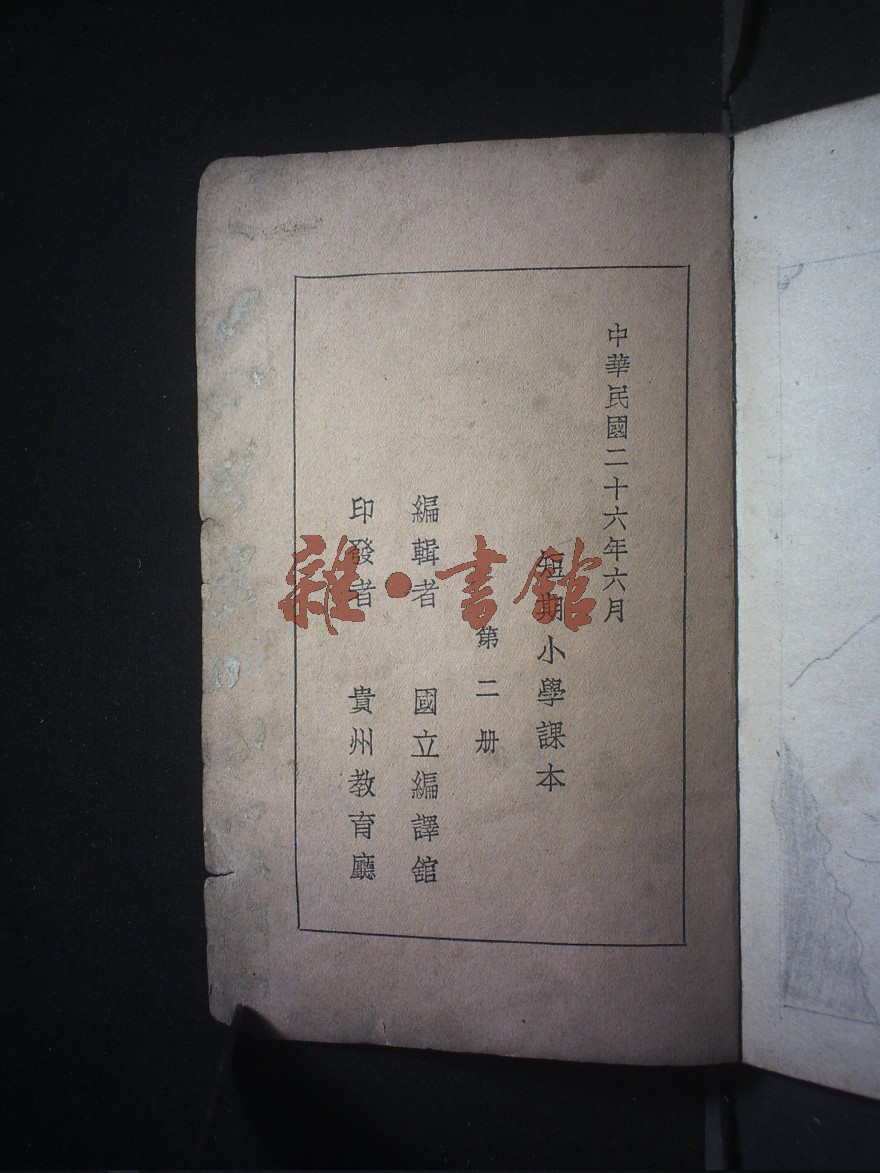 中華民國二十六年六月
短期小學課本
第二册
編輯者 國立編譯舘
印發者 貴州教育廳
雜·書館